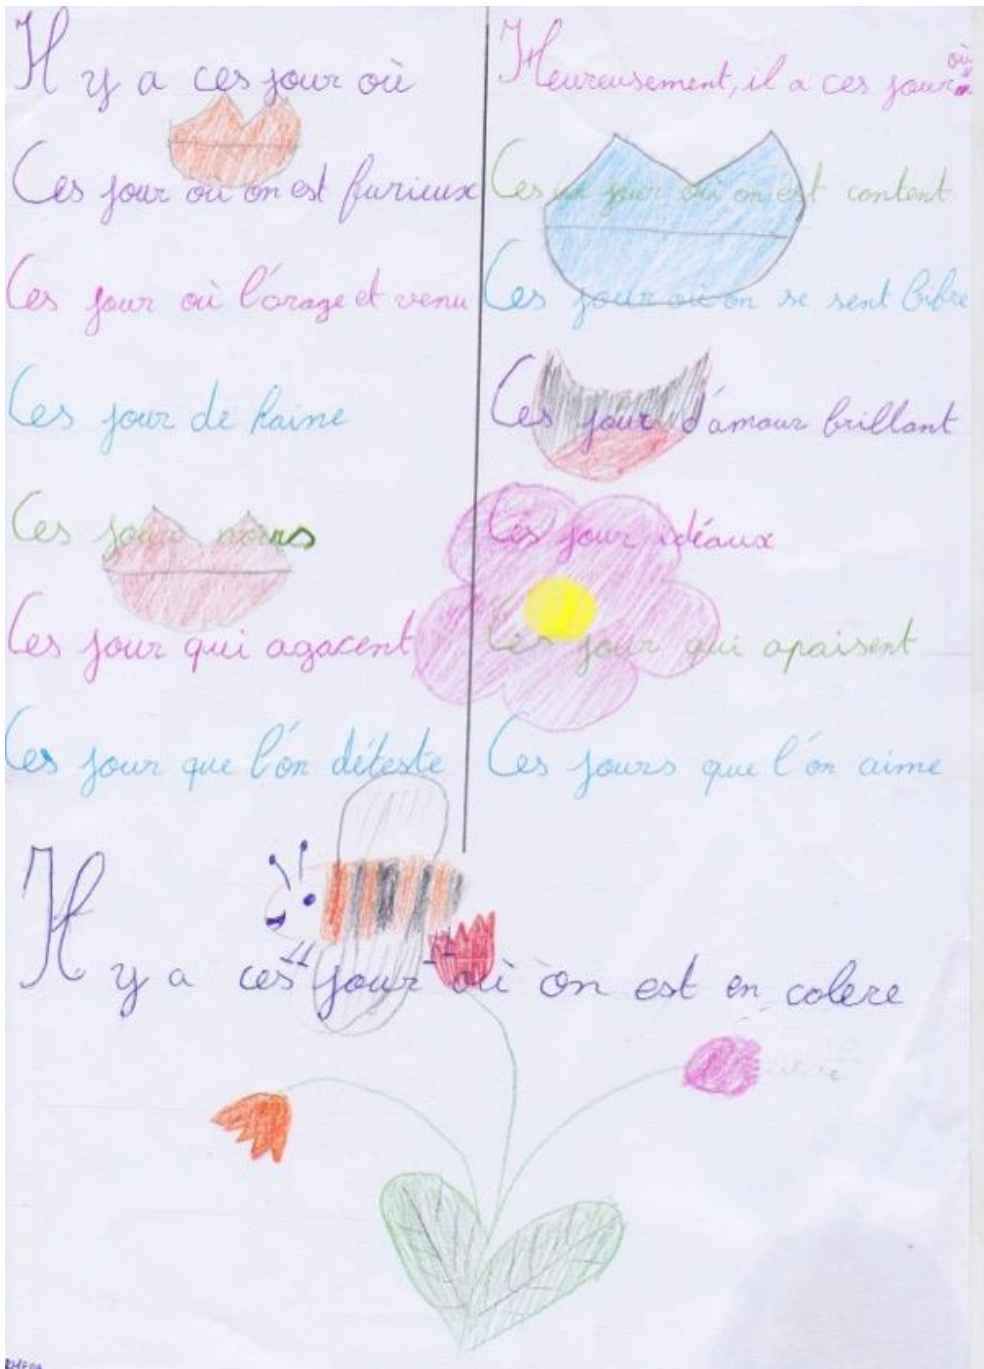 Il y a ces jour où
Ces jour où on est furieux
Ces jour où l'orage et venu
Ces jour de haine
Ces jour noirs
Ces jour qui agacent
Ces jour que l'on déteste
Heureusement, il a ces jour où
Ces jour où on est content
Ces jour où on se sent libre
Ces jour d'amour brillant
Ces jour idéaux
Ces jour qui apaisent
Ces jours que l'on aime
Il y a ces jour où on est en colere